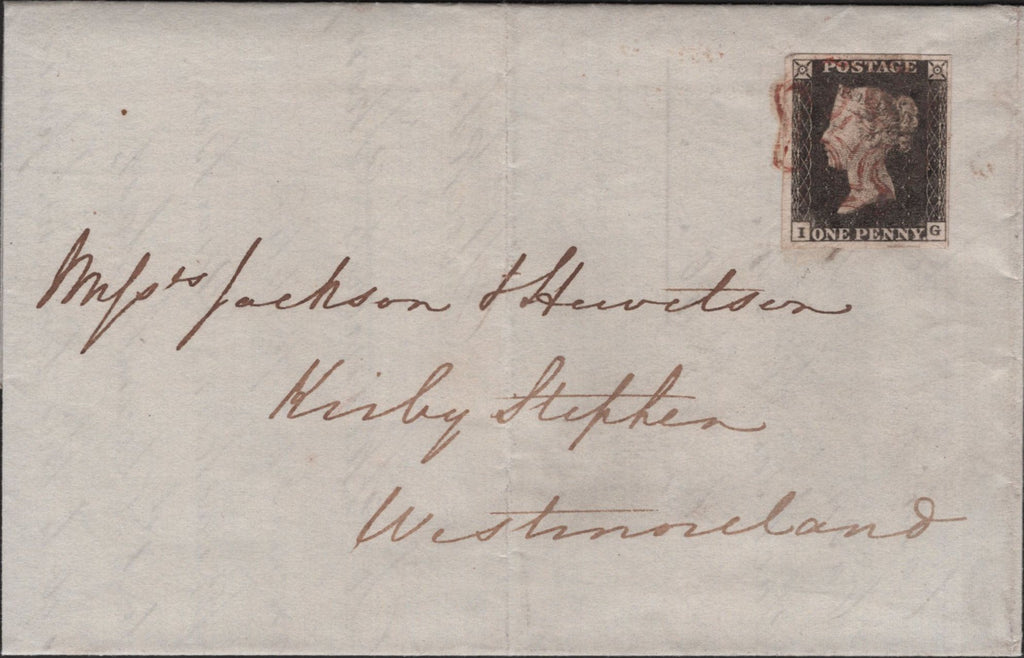 POSTAGE
I ONE PENNY. G
Mefsrs Jackson & Hewetson
Kirby Stephen
Westmoreland